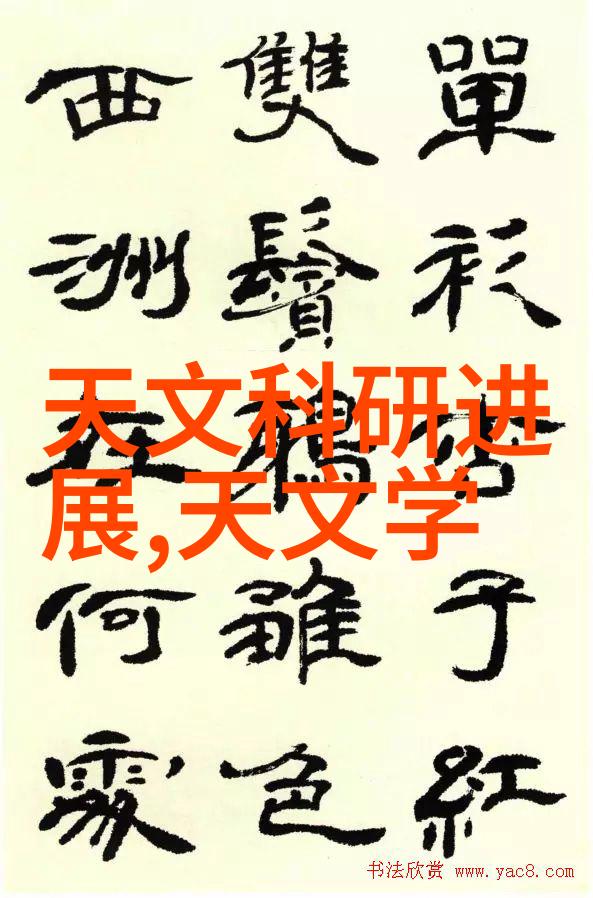 單衫杏子紅
雙鬢鴉雛色
西洲在何處
天文科研进
展,天文学
书法欣赏 www.yac8.com